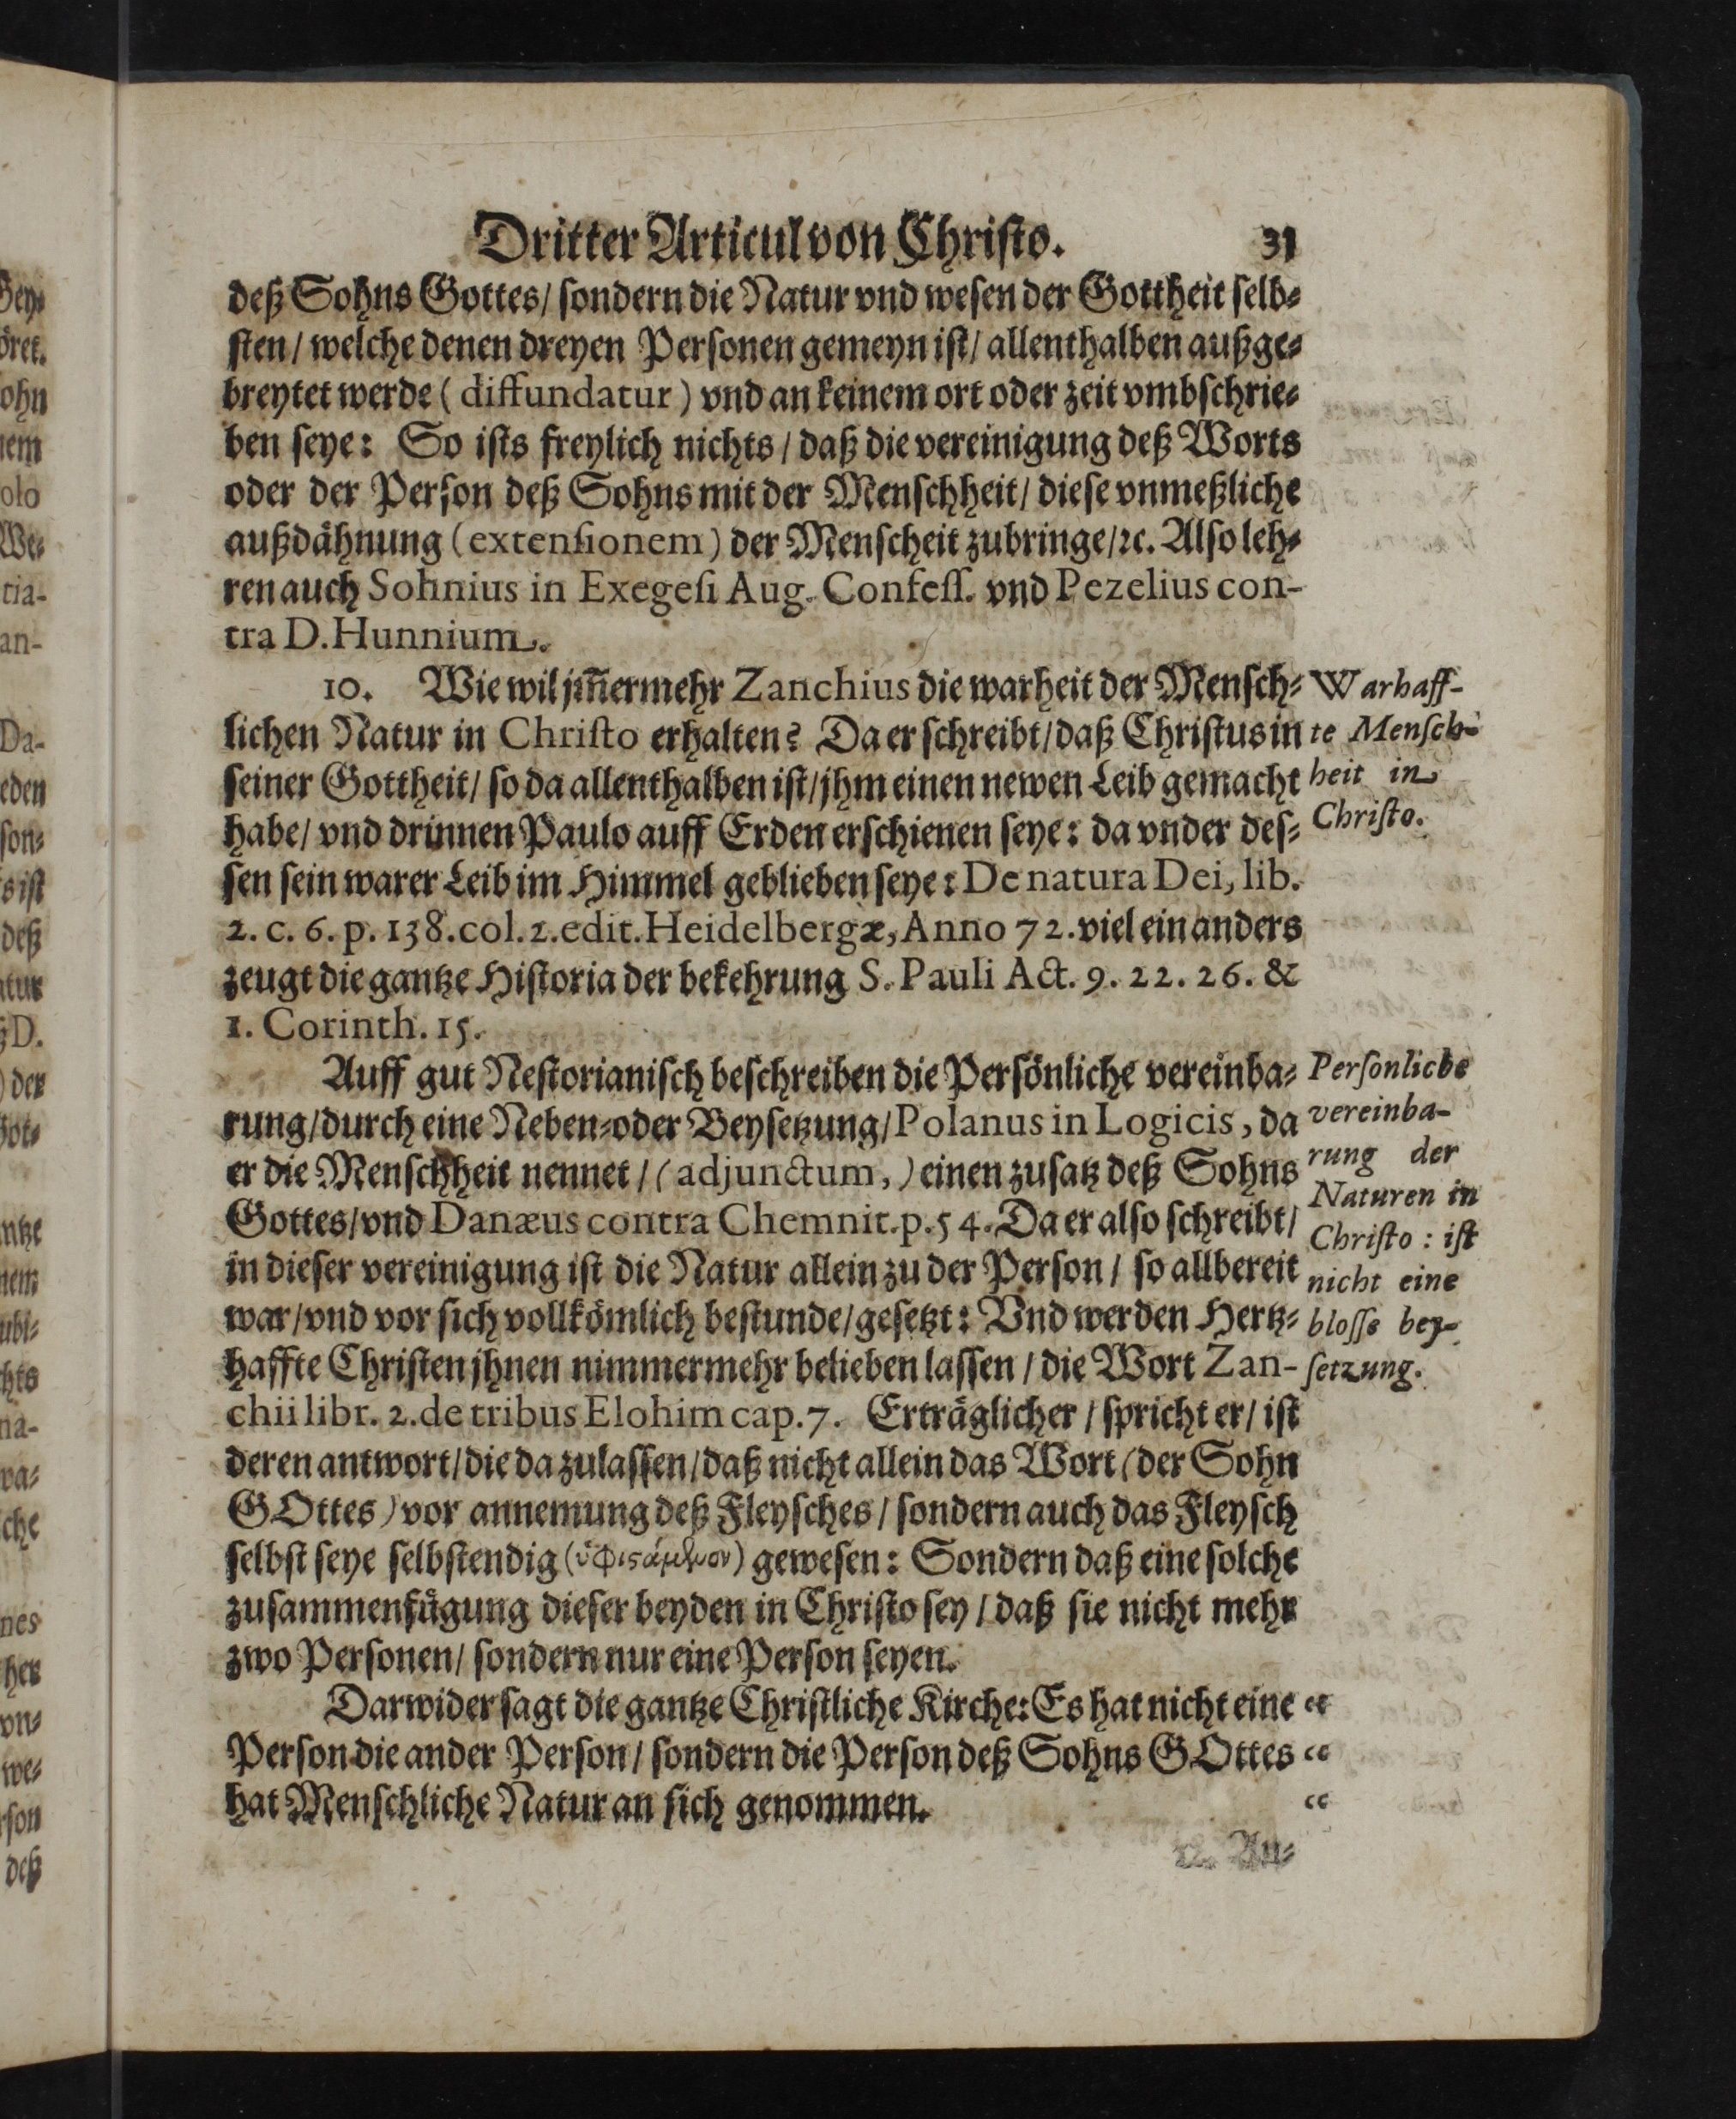 Dritter Articul von Christo. 31
deß Sohns Gottes/ sondern die Natur vnd wesen der Gottheit selb-
sten/ welche denen dreyen Personen gemeyn ist/ allenthalben außge-
breytet werde (diffundatur) vnd an keinem ort oder zeit vmbschrie-
ben seye: So ists freylich nichts/ daß die vereinigung deß Worts
oder der Person deß Sohns mit der Menschheit/ diese vnmeßliche
außdähnung (extensionem) der Menscheit zubringe/ꝛc. Also leh-
ren auch Sohnius in Exegesi Aug. Confess. vnd Pezelius con-
tra D. Hunnium.
10. Wie wil jm̃ermehr Zanchius die warheit der Mensch-
lichen Natur in Christo erhalten? Da er schreibt/ daß Christus in
seiner Gottheit/ so da allenthalben ist/ jhm einen newen Leib gemacht
habe/ vnd drinnen Paulo auff Erden erschienen seye: da vnder des-
sen sein warer Leib im Himmel geblieben seye: De natura Dei, lib.
2. c. 6. p. 138. col. 2. edit. Heidelbergæ, Anno 72. viel ein anders
zeugt die gantze Historia der bekehrung S. Pauli Act. 9. 22. 26. &
1. Corinth. 15.
Warhaff-
te Mensch-
heit in
Christo.
Auff gut Nestorianisch beschreiben die Persönliche vereinba-
rung/ durch eine Neben-oder Beysetzung/ Polanus in Logicis, da
er die Menschheit nennet/ (adjunctum,) einen zusatz deß Sohns
Gottes/ vnd Danæus contra Chemnit. p. 54. Da er also schreibt/
in dieser vereinigung ist die Natur allein zu der Person/ so allbereit
war/ vnd vor sich vollkömlich bestunde/ gesetzt: Vnd werden Hertz-
haffte Christen jhnen nimmermehr belieben lassen/ die Wort Zan-
chii libr. 2. de tribus Elohim cap. 7. Erträglicher/ spricht er/ ist
deren antwort/ die da zulassen/ daß nicht allein das Wort (der Sohn
GOttes) vor annemung deß Fleysches/ sondern auch das Fleysch
selbst seye selbstendig (ὑφιϛάμενον) gewesen: Sondern daß eine solche
zusammenfügung dieser beyden in Christo sey/ daß sie nicht mehr
zwo Personen/ sondern nur eine Person seyen.
Personliche
vereinba-
rung der
Naturen in
Christo: ist
nicht eine
blosse bey-
setzung.
Darwider sagt die gantze Christliche Kirche: Es hat nicht eine “
Person die ander Person/ sondern die Person deß Sohns GOttes “
hat Menschliche Natur an sich genommen. “
An-